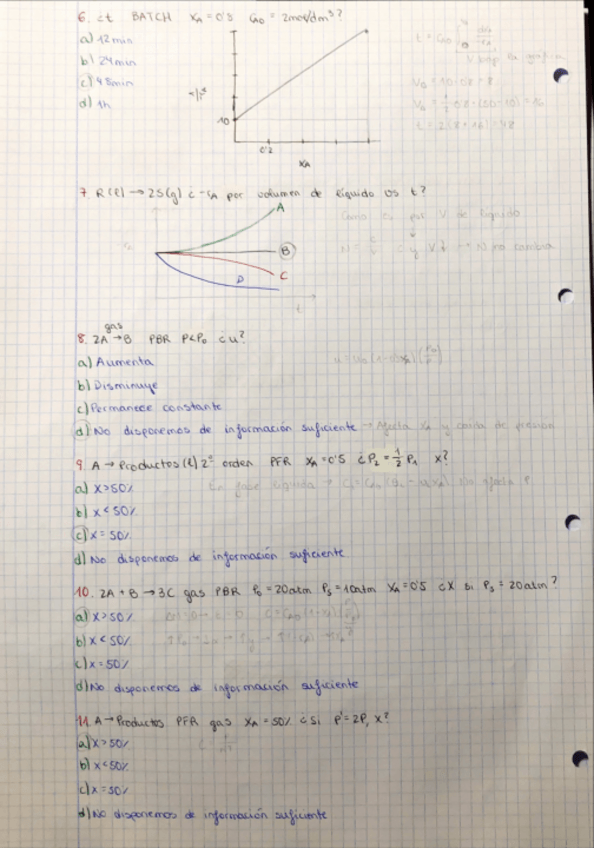 6. ¿t BATCH XA=0'8 CA0=2mol/dm³?
a) 12min
b) 24min
c) 48min
d) 1h
10
0'2
XA
VA = 10·0'8 = 8
t = 2(8+16) = 48
7. R(l) → 2S(g) ¿-rA por volumen de líquido vs t?
A
B
C
D
t
Como es por V de líquido
N no cambia
8. 2A → B PBR P<P0 ¿u?
gas
a) Aumenta
b) Disminuye
c) Permanece constante
d) No disponemos de información suficiente → Afecta XA y caída de presión
9. A → Productos (l) 2º orden PFR XA=0'5 ¿P2=1/2 P1 X?
a) X>50%
b) X<50%
c) X=50%
d) No disponemos de información suficiente
En fase líquida → No afecta P
10. 2A + B → 3C gas PBR P0=20atm Ps=10atm XA=0'5 ¿X si Ps=20atm?
a) X>50%
b) X<50%
c) X=50%
d) No disponemos de información suficiente
11. A → Productos PFR gas XA=50% ¿Si P'=2P, X?
a) X>50%
b) X<50%
c) X=50%
d) No disponemos de información suficiente